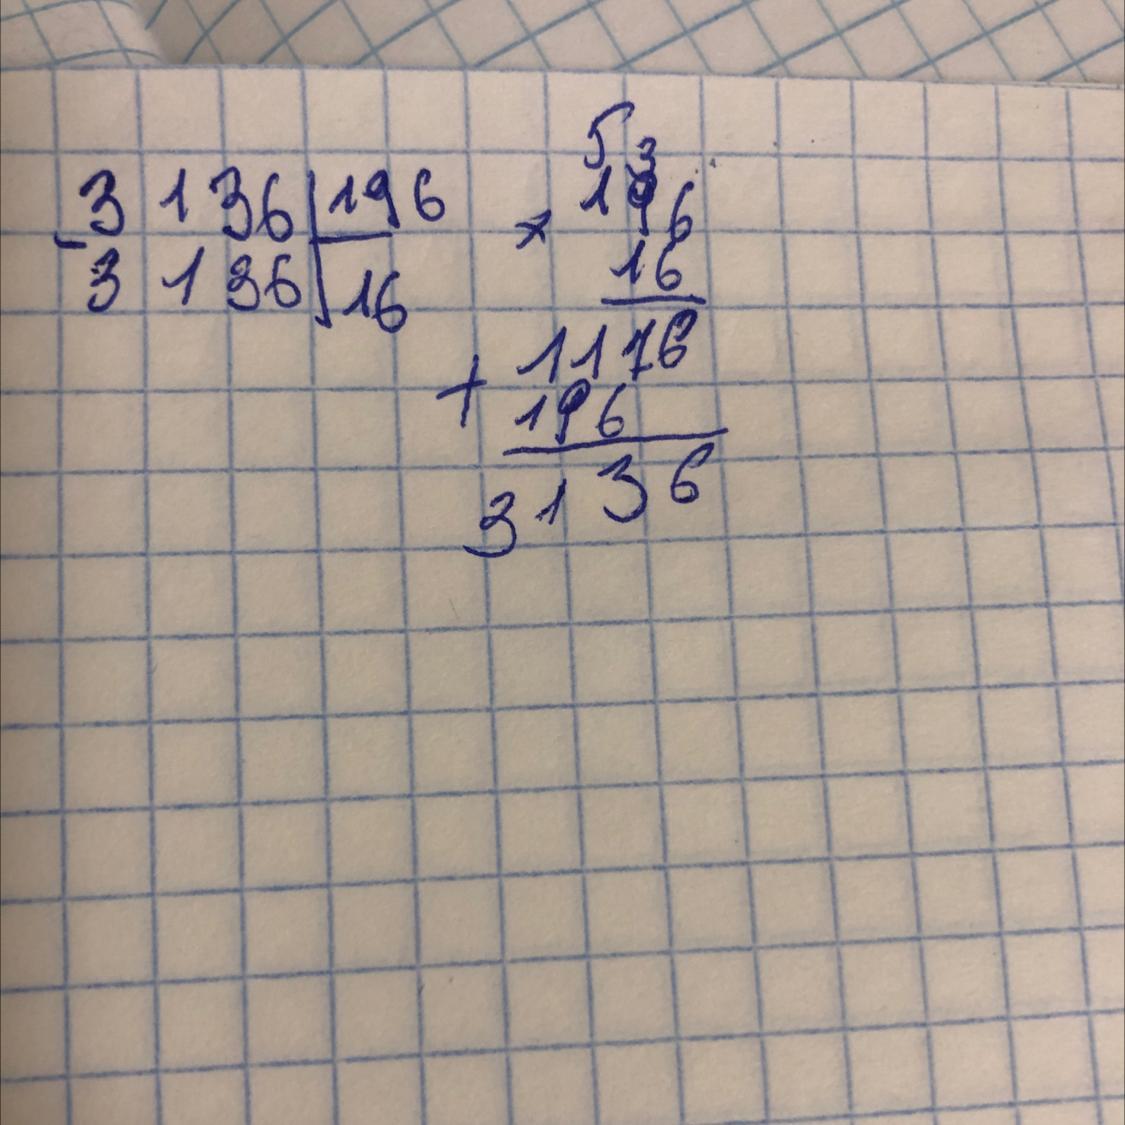 3136 | 196
- 3136 | 16
5 3
196
× 16
1176
+ 196
3136